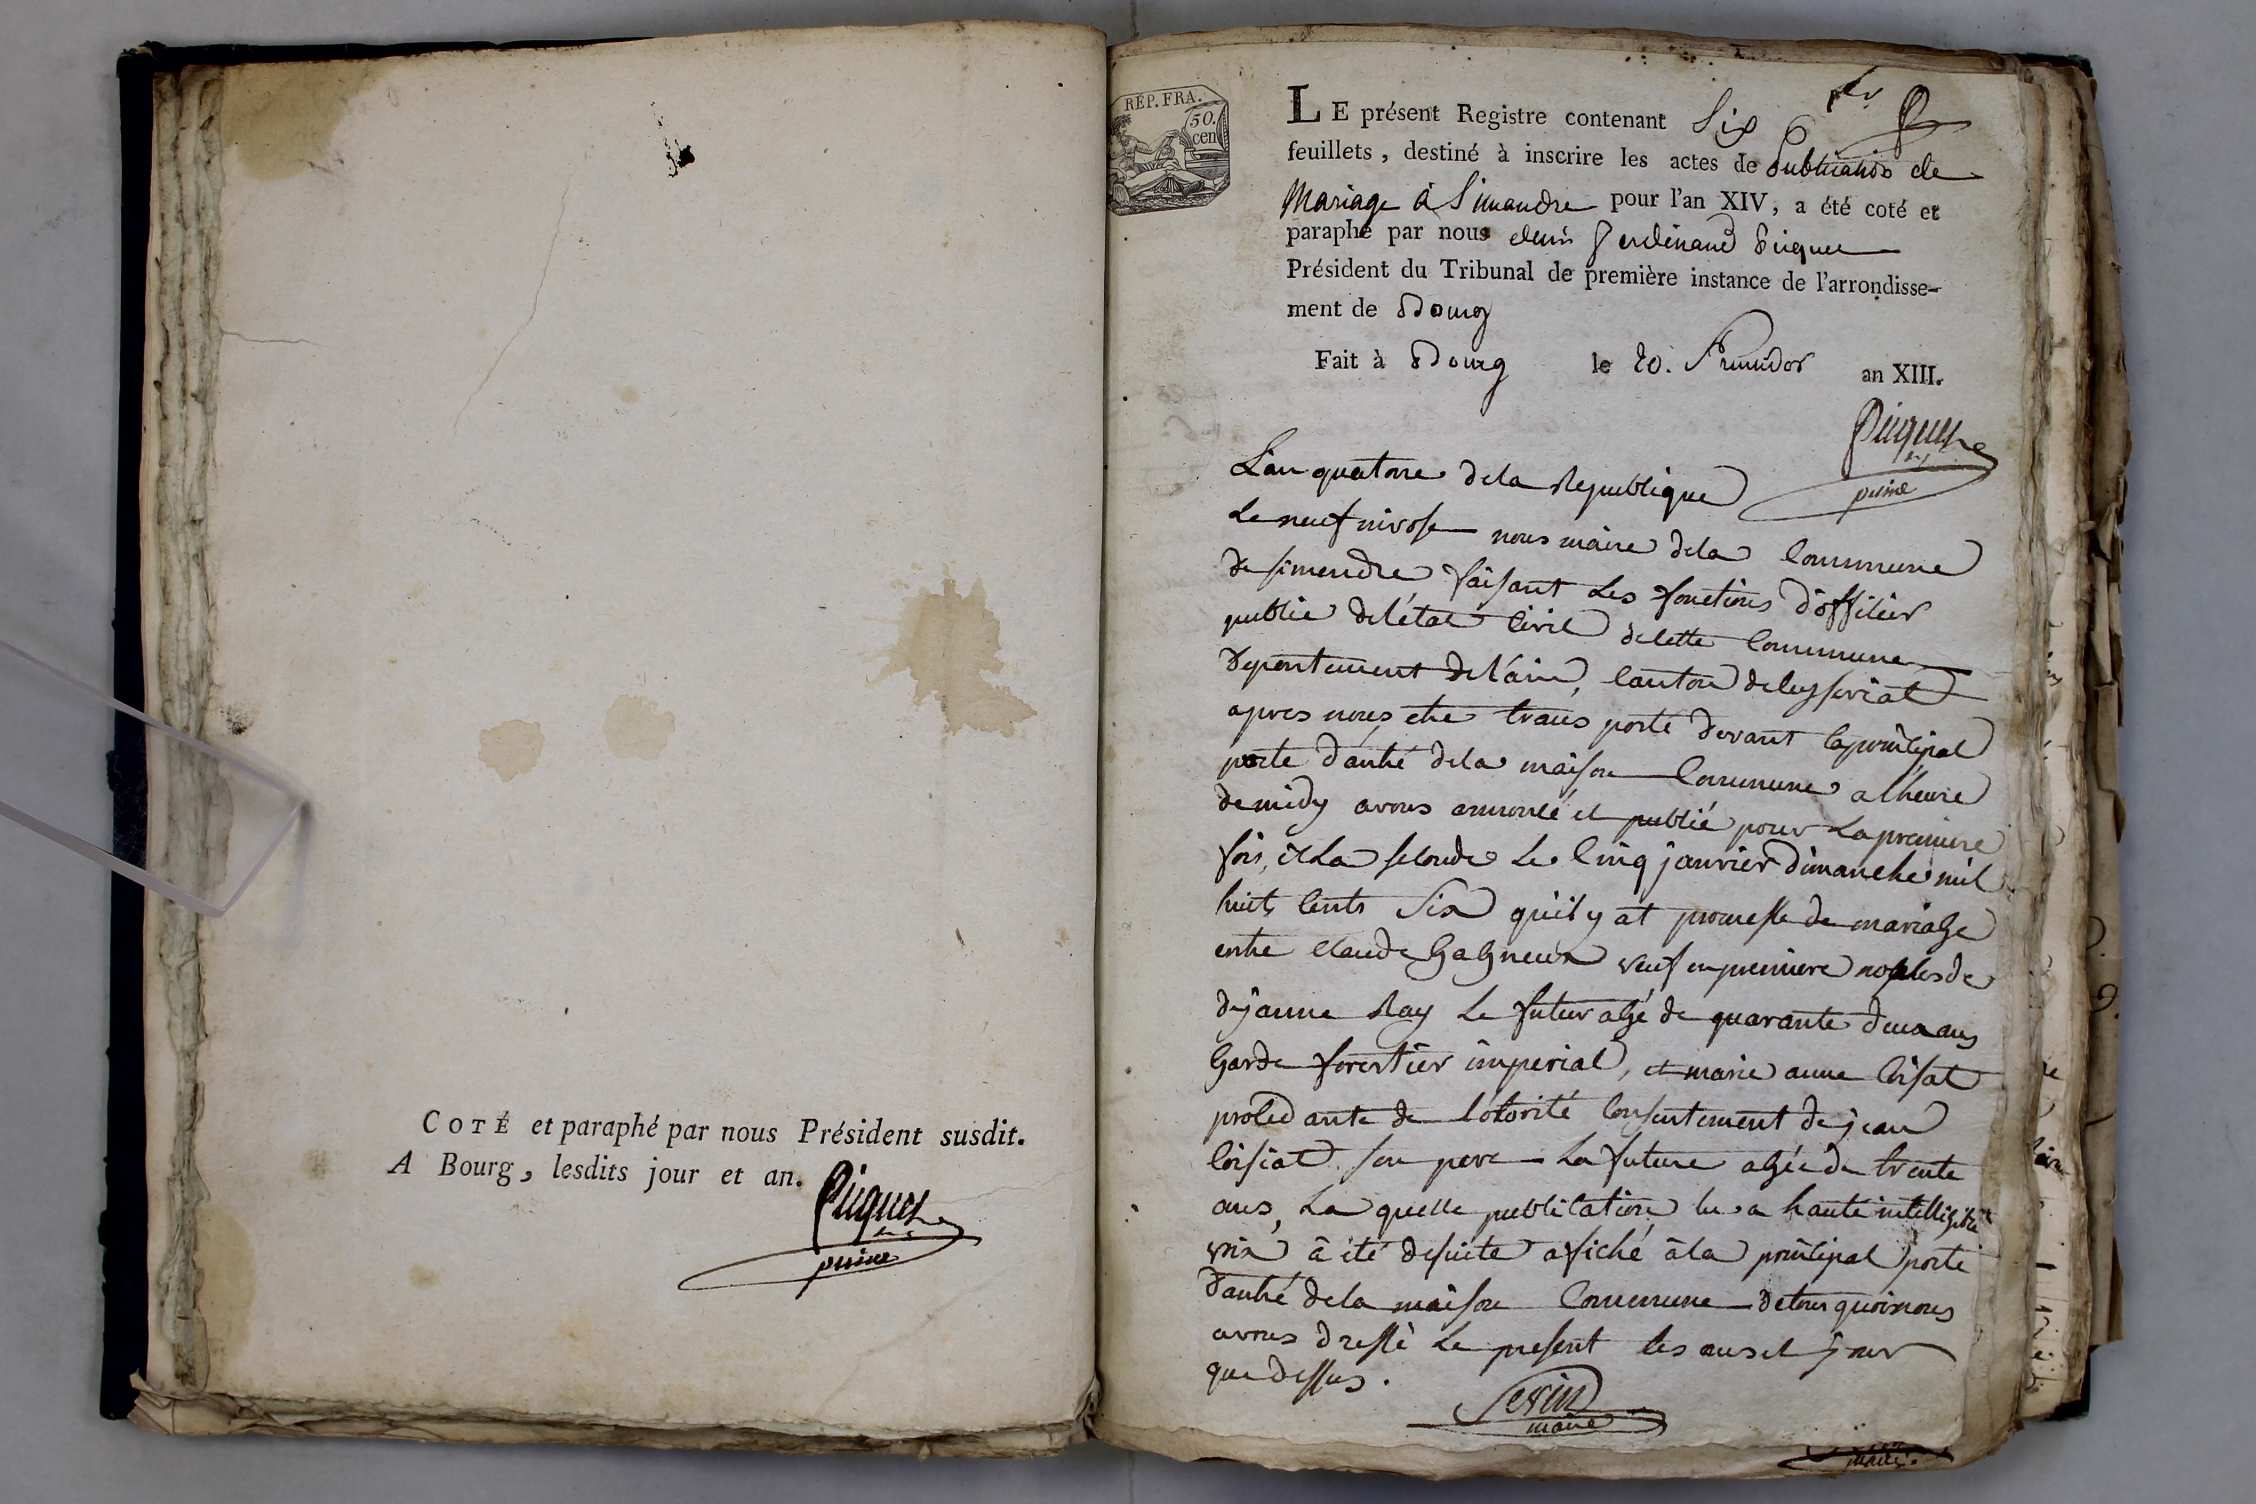 COTÉ et paraphé par nous Président susdit.
A Bourg, lesdits jour et an.
Picquet
RÉP. FRA.
50.
cen
1er
LE présent Registre contenant Six
feuillets, destiné à inscrire les actes de Publication de
Mariage à Simandre pour l'an XIV, a été coté et
paraphé par nous denis ferdinand Picquet
Président du Tribunal de première instance de l'arrondisse-
ment de Bourg
Fait à Bourg le 20. Fructidor an XIII.
Picquet
L'an quatorze dela Republique
Le neuf nivose nous maire dela Commune
de simendre faisant Les fonctions d'officier
public deletat Civil decette Commune
Departement de l'ain, Canton deceyseriat
apres nous etre trans porté devant laprincipal
porte d'antré dela maison Commune alheure
de midy avons anoncé et publié pour Lapremiere
fois, et La seconde Le Cinq janvier dimanche mil
huit Cents Six qu'il y at promesse de mariage
entre Claude Gagneux veuf enpremiere nopces de
dejanne Ray Le futur agé de quarante deux ans
Garde forestier imperial, et marie anne Coisat
procedante de l'otorité Consentement de jean
Coisiat son pere La future agée de trente
ans, La quelle publication lu a haute intelligible
voix à été desuite afiché à la principal porte
d'antré dela maison Commune detous quoi nous
avons dressé Le present les ans et jour
que dessus.
maire